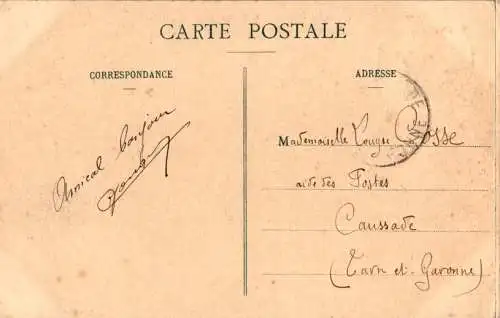 CARTE POSTALE
CORRESPONDANCE
ADRESSE
Amical bonjour
Mademoiselle Louyse Cosse
aide des Postes
Caussade
(Tarn et Garonne)